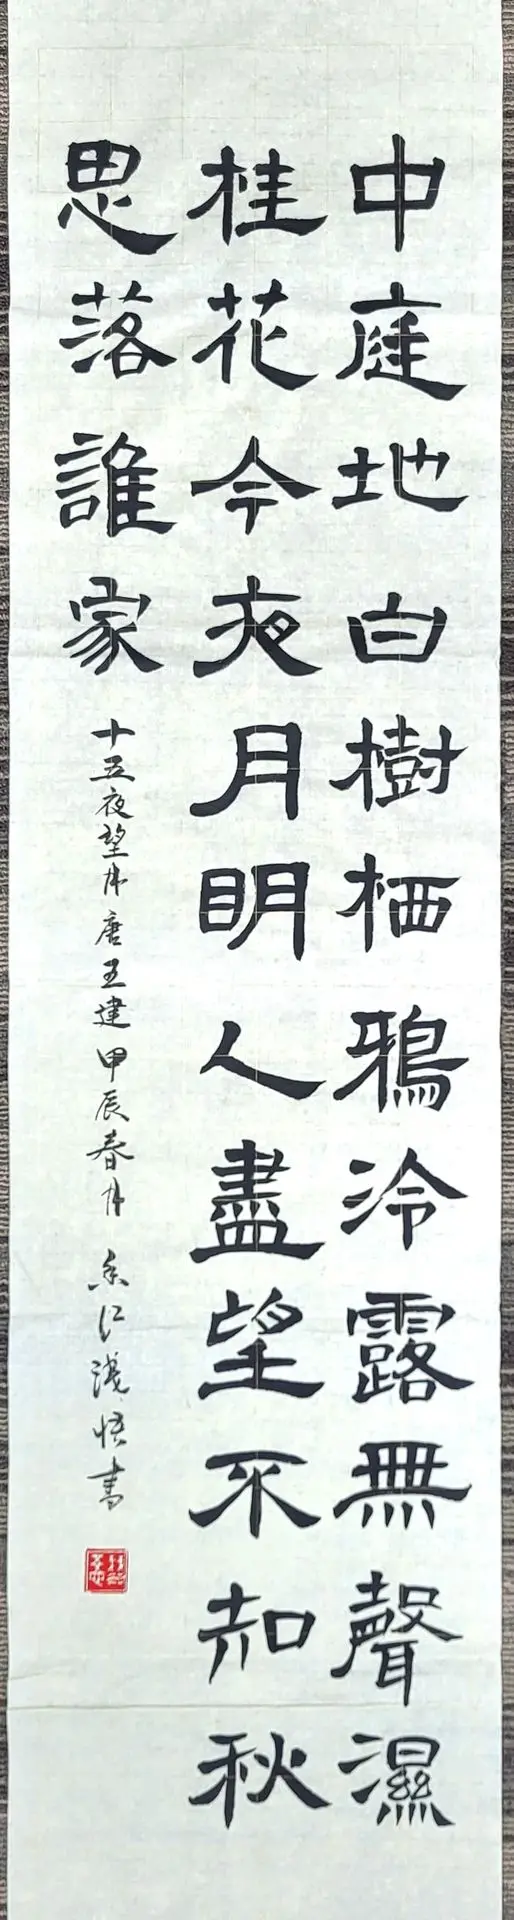 中庭地白樹栖鴉泠露無聲濕
桂花今夜月明人盡望不知秋
思落誰家
十五夜望月唐王建甲辰春月 香江淺悟書